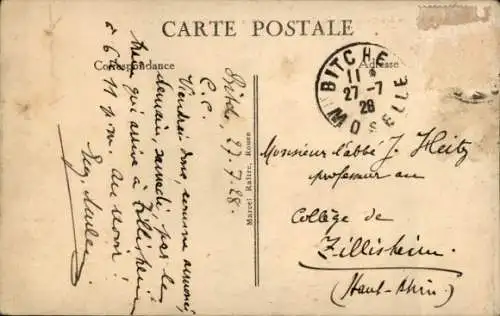 CARTE POSTALE
Correspondance
Adresse
BITCHE
11
27-7
28
MOSELLE
Bitche, 27.7.28.
C. C.
Viendrai donc, comme annoncé,
demain, samedi, par le
train qui arrive à Zillisheim
à 6h 11 pm. Au revoir!
Eug.
Marcel Raitre, Rouen
Monsieur l'abbé J. Heitz
professeur au
Collège de
Zillisheim.
(Haut-Rhin)